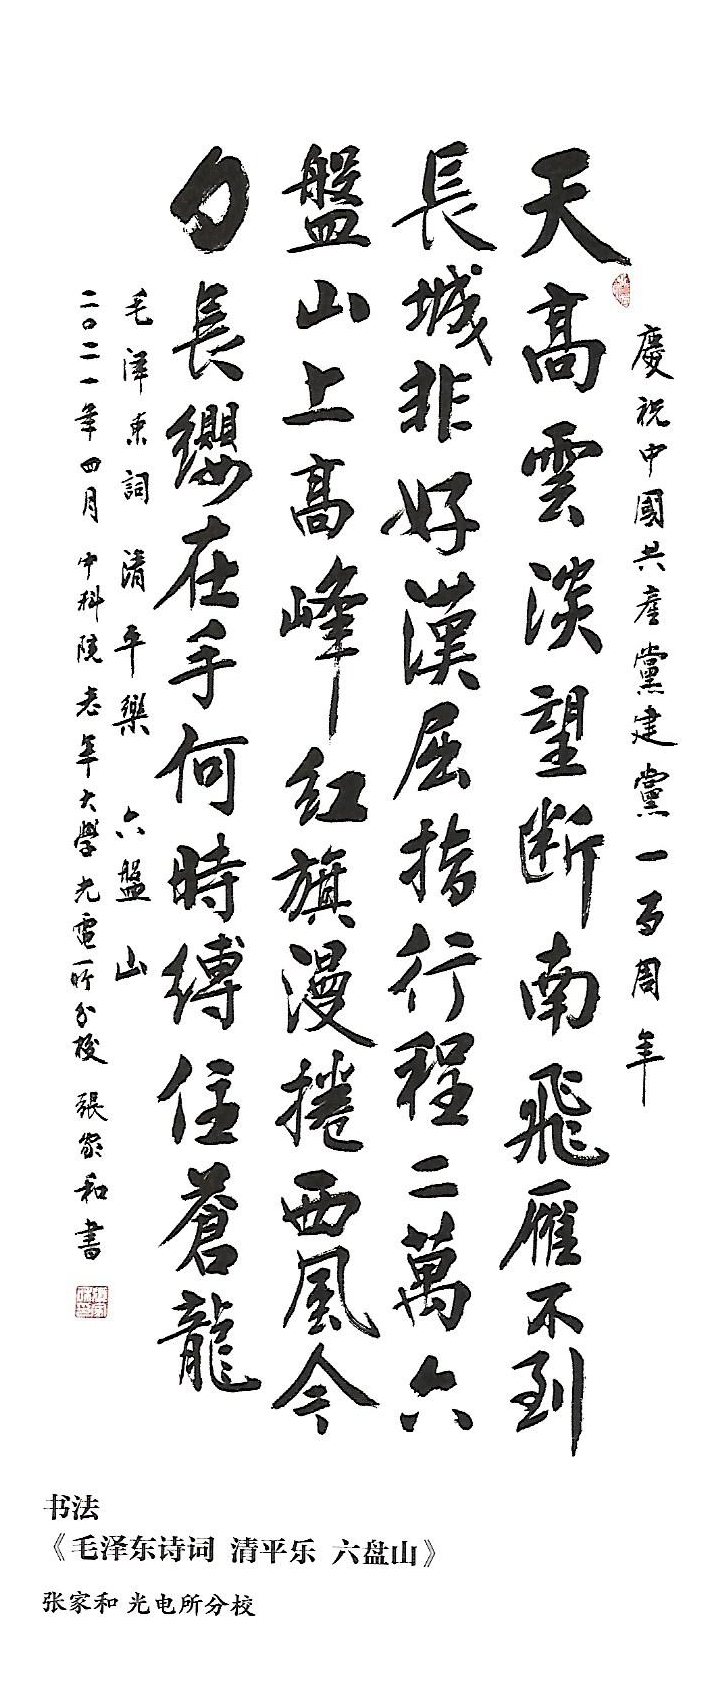 慶祝中國共產黨建黨一百周年
天高雲淡望斷南飛雁不到
長城非好漢屈指行程二萬六
盤山上高峰紅旗漫捲西風今
日長纓在手何時縛住蒼龍
毛澤東詞 清平樂 六盤山
二〇二一年四月 中科院老年大學光電所分校 張家和書
书法
《毛泽东诗词 清平乐 六盘山》
张家和 光电所分校